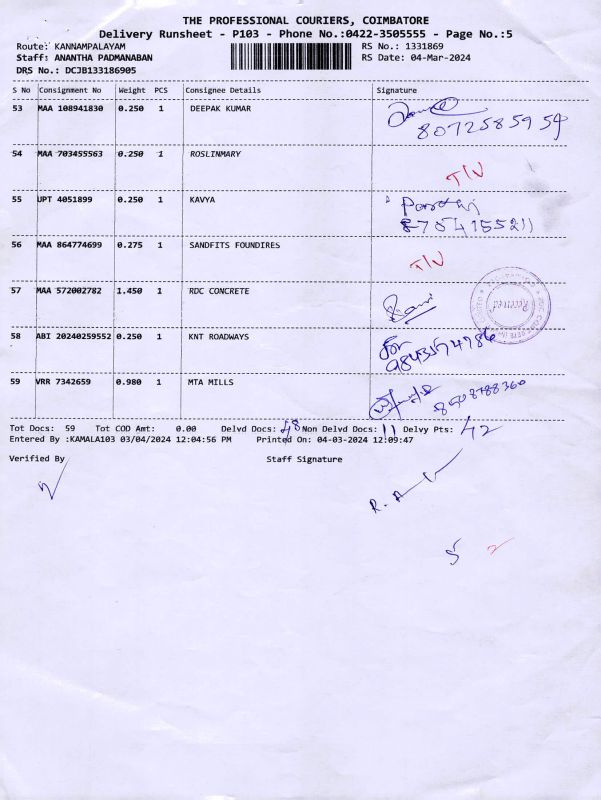 THE PROFESSIONAL COURIERS, COIMBATORE
Delivery Runsheet - P103 - Phone No.:0422-3505555 - Page No.:5
Route: KANNAMPALAYAM RS No.: 1331869
Staff: ANANTHA PADMANABAN RS Date: 04-Mar-2024
DRS No.: DCJB133186905
S No Consignment No Weight PCS Consignee Details Signature
53 MAA 108941830 0.250 1 DEEPAK KUMAR
8072585959
54 MAA 703455563 0.250 1 ROSLINMARY T/V
55 UPT 4051899 0.250 1 KAVYA
56 MAA 864774699 0.275 1 SANDFITS FOUNDIRES T/V
57 MAA 572002782 1.450 1 RDC CONCRETE Received
58 ABI 20240259552 0.250 1 KNT ROADWAYS For
9843574786
59 VRR 7342659 0.980 1 MTA MILLS 8508788360
Tot Docs: 59 Tot COD Amt: 0.00 Delvd Docs: 48 Non Delvd Docs: 11 Delvy Pts: 42
Entered By :KAMALA103 03/04/2024 12:04:56 PM Printed On: 04-03-2024 12:09:47
Verified By Staff Signature